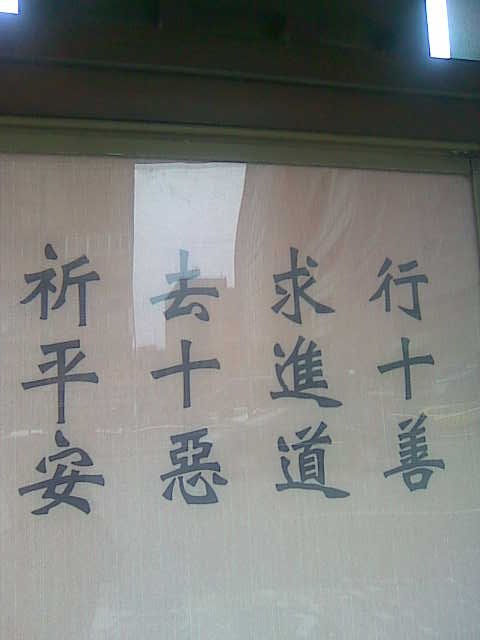 行十善
求進道
去十惡
祈平安